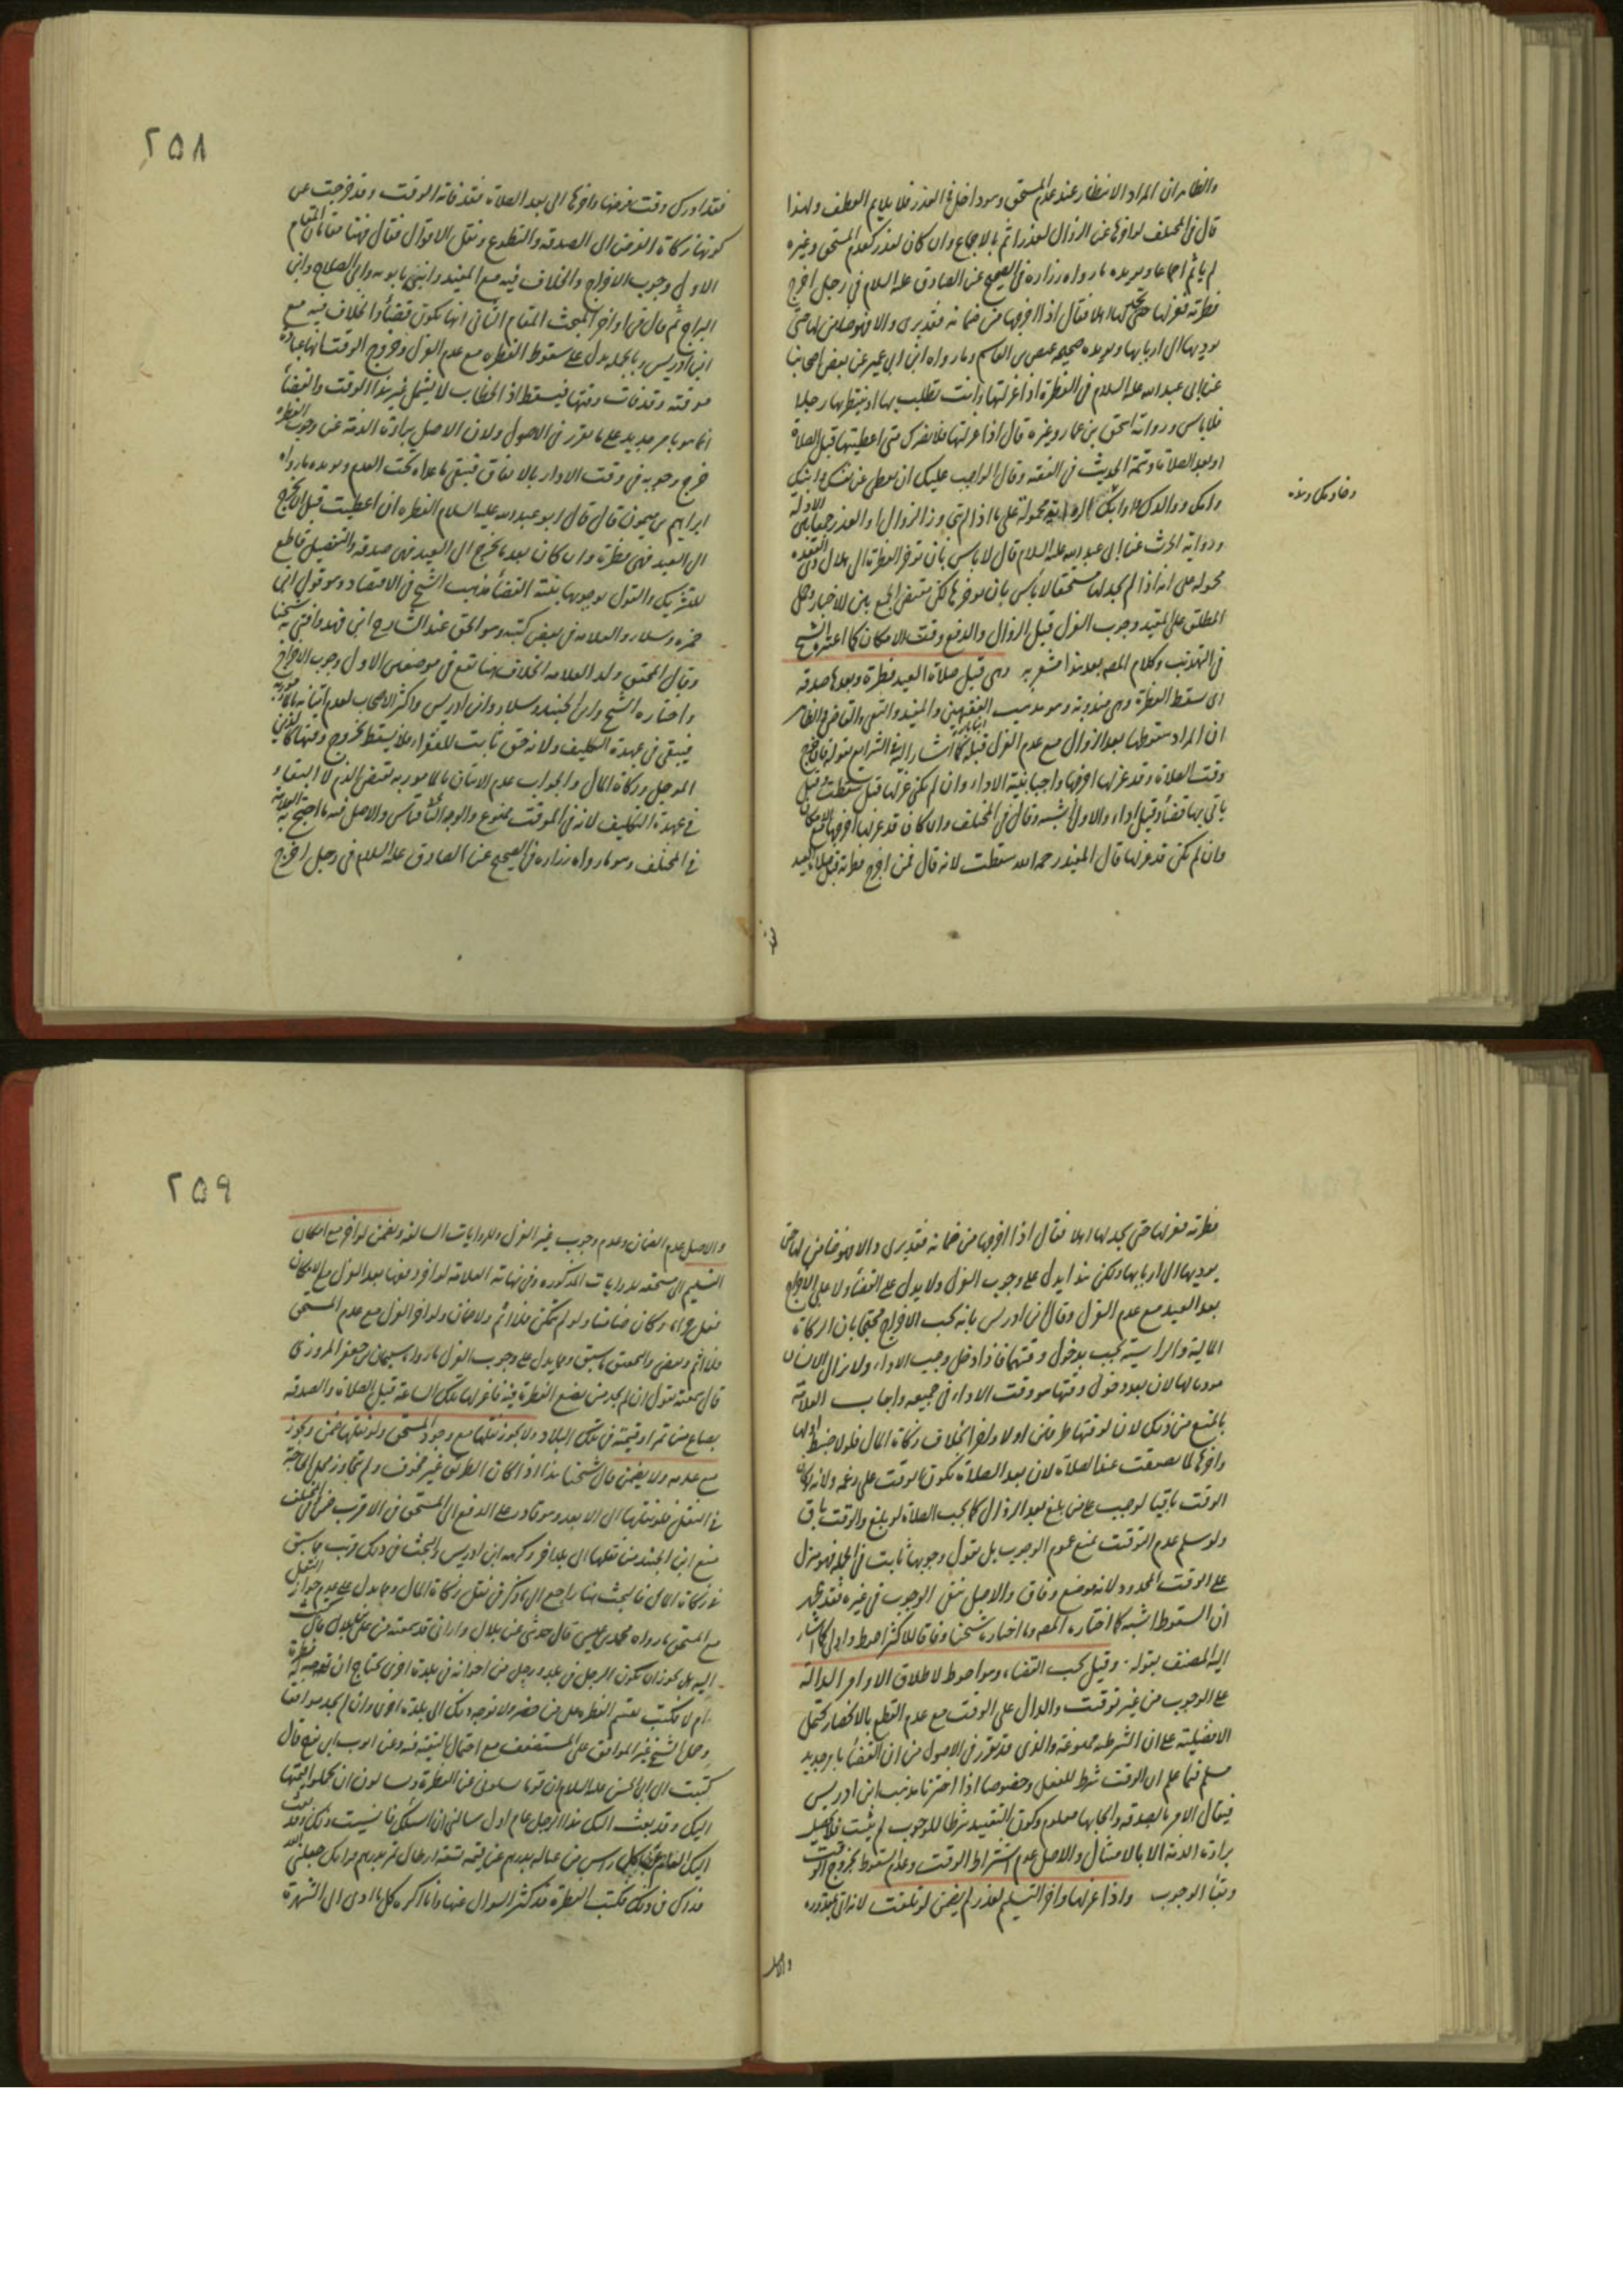 والظاهر ان المراد الانتظار عند عدم المستحق وهو داخل في العذر فلا يلايم العطف ولهذا
قال في المختلف لو اخرها عن الزوال لغير عذر اثم بالاجماع وان كان لعذر كعدم المستحق وغيره
لم ياثم اجماعا ويويده ما رواه زراره في الصحيح عن الصادق عليه السلام في رجل اخرج
فطرته فعزلها حتى يجد لها اهلا فقال اذا اخرجها من ضمانه فقد برى والا فهو ضامن لها حتى
يوديها الى اربابها ويويده صحيحه عيص بن القاسم وما رواه ابن ابي عمير عن بعض اصحابنا
عن ابي عبد الله عليه السلام في الفطرة اذا عزلتها وانت تطلب بها او تنتظر بها رجلا
فلا باس ورواية اسحق بن عمار وغيره قال اذا عزلتها فلا يضرك متى اعطيتها قبل الصلاة
او بعد الصلاة وتتمة الحديث في الفقه وقال الواجب عليك ان تعطي عن نفسك وابيك
وامك وولدك وامراتك
وخادمك ونه
ورواية الحرث عن ابي عبد الله عليه السلام قال لا باس بان توخر الفطرة الى هلال ذي القعده
محموله على انه اذا لم يجد لها مستحقا لا باس بان يوخرها لكن مقتضى الجمع بين الاخبار وحمل
المطلق على المقيد وجوب العزل قبل الزوال والدفع وقت الامكان كما اعتبره الشيخ
في التهذيب وكلام المصه بعد هذا مشعر به وهي قبل صلاة العيد فطرة وبعدها صدقه
اى سقط الفطرة وهي مندوبة وهو مذهب الفقيهين والمفيد والتقي والقاضي والظاهر
ان المراد سقوطها بعد الزوال مع عدم العزل قبله كما اشار اليه في الشرايع بقوله فان خرج
وقت الصلاة وقد عزلها اخرجها واجبا بنية الاداء وان لم يكن عزلها قيل سقطت وقيل
ياتى بها قضاء وقيل اداء والاول اشبه وقال في المختلف وان كان قد عزلها اخرجها مع الامكان
وان لم يكن قد عزلها قال المفيد رحمه الله سقطت لانه قال فمن اخرج فطرته قبل صلاة العيد
٢٥٨
فقد ادرك وقت فرضها وان اخرها الى بعد الصلاة فقد فاته الوقت وقد خرجت عن
كونها زكاة الفرض الى الصدقه والتطوع ونقل الاقوال فقال فهنا مقامان المقام
الاول وجوب الاخراج والخلاف فيه مع المفيد وابني بابويه وابي الصلاح وابن
البراج ثم قال في اواخر المبحث المقام الثاني انها يكون قضاء والخلاف فيه مع
ابن ادريس وبالجمله يدل على سقوط الفطره مع عدم العزل وخروج الوقت انها عبادة
موقته وقد فات وقتها فيسقط اذ الخطاب لا يشمل غير هذا الوقت والقضاء
انما هو بامر جديد على ما تقرر في الاصول ولان الاصل براءة الذمة عن وجوب الفطره
خرج وجوبه في وقت الاداء بالاتفاق فيبقى ما عداه تحت العدم ويويده ما رواه
ابراهيم بن ميمون قال قال ابو عبد الله عليه السلام الفطره ان اعطيت قبل ان يخرج
الى العيد فهي فطرة وان كان بعد ما يخرج الى العيد فهي صدقه والتفصيل قاطع
للتشريك والقول بوجوبها بنية القضاء مذهب الشيخ في الاقتصاد وهو قول ابن
حمزه وسلار والعلامه في بعض كتبه وهو الحق عند الشارح ابن فهد وافتى به شيخنا
وقال المحقق ولد العلامه الخلاف هنا يقع في موضعين الاول وجوب الاخراج
واختاره الشيخ وابن الجنيد وسلار وابن ادريس واكثر الاصحاب لعدم اتيانه بالمامور به
فيبقى في عهدة التكليف ولانه حق ثابت للفقراء فلا يسقط بخروج وقتها كالدين
الموجل وزكاة المال والجواب عدم الاتيان بالمامور به يقتضي الذم لا البقاء
في عهدة التكليف لانه في الموقت ممنوع والوجه الثاني قياس والاصل فيه ما احتج به العلامة
في المختلف وهو ما رواه زراره في الصحيح عن الصادق عليه السلام في رجل اخرج
فطرته فعزلها حتى يجد لها اهلا فقال اذا اخرجها من ضمانه فقد برى والا فهو ضامن لها حتى
يوديها الى اربابها ولكن هذا يدل على وجوب العزل ولا يدل على القضاء ولا على الاخراج
بعد العيد مع عدم العزل وقال ابن ادريس بانه يجب الاخراج محتجا بان الزكاة
المالية والراسية يجب بدخول وقتهما فاذا دخل وجب الاداء ولا يزال الانسان
موديا لها لان بعد دخول وقتها هو وقت الاداء في جميعه واجاب العلامة
بالمنع من ذلك لان لوقتها طرفين اولا واخرا بخلاف زكاة المال فلو لا ضبط اولها
واخرها لما تضيقت عند الصلاة لان بعد الصلاة يكون الوقت على زعمه ولانه لو كان
الوقت باقيا لوجب على من بلغ بعد الزوال كما يجب الصلاة لو بلغ والوقت باق
ولو سلم عدم التوقيت نمنع عموم الوجوب بل نقول وجوبها ثابت في الجملة فهو منزل
على الوقت المحدود لانه موضع وفاق والاصل نفي الوجوب في غيره فقد ظهر
ان السقوط اشبه كما اختاره المصه وما اختاره شيخنا وفاقا للاكثر احوط واولى كما اشار
اليه المصنف بقوله وقيل يجب القضاء وهو احوط لاطلاق الاوامر الدالة
على الوجوب من غير توقيت والدال على الوقت مع عدم القطع بالانحصار يحتمل
الافضلية على ان الشرطية ممنوعة والذى قد تقرر في الاصول من ان القضاء بامر جديد
مسلم فيما علم ان الوقت شرط للفعل وخصوصا اذا اخترنا مذهب ابن ادريس
فيقال الامر بالصدقه وايجابها معلوم وكون التقييد شرطا للوجوب لم يثبت فلا يحصل
براءة الذمة الا بالامتثال والاصل عدم اشتراط الوقت وعدم السقوط بخروج الوقت
وبقاء الوجوب واذا عزلها واخر التسليم لعذر لم يضمن لو تلفت لانه اتى بمقدوره
والاصل
٢٥٩
والاصل عدم الضمان وعدم وجوب غير العزل وللروايات السالفة ويضمن لو اخر مع امكان
التسليم الى مستحقه للروايات المذكوره وفي نهاية العلامة لو اخر دفعها بعد العزل مع الامكان
فعل حراما وكان ضامنا ولو لم يتمكن فلا اثم ولا ضمان ولو اخر العزل مع عدم المستحق
فلا اثم وبعض والتحقيق ما سبق ومما يدل على وجوب العزل ما رواه سليمان بن جعفر المروزى
قال سمعته يقول ان لم يجد من يضع الفطرة فيه فاعزلها تلك الساعة قبل الصلاة والصدقه
بصاع من تمر او قيمته في تلك البلاد ولا يجوز نقلها مع وجود المستحق ولو نقلها ضمن ويجوز
مع عدمه ولا يضمن قال شيخنا هذا اذا كان الطريق غير مخوف ولم يتجاوز محل الحاجة
في النقل فلو نقلها الى الابعد وهو قادر على الدفع الى المستحق في الاقرب ضمن
منع ابن الجنيد من نقلها الى بلد اخر وكرهه ابن ادريس والبحث في ذلك قريب مما سبق
في زكاة المال فالبحث هنا راجع الى ما ذكر في نقل زكاة المال ومما يدل على عدم جواز النقل
مع المستحق ما رواه محمد بن عيسى قال حدثني علي بن بلال واراني قد سمعته من علي بن بلال قال كتبت
اليه هل يجوز ان يكون الرجل في بلد ورجل من اخوانه في بلدة اخرى يحتاج ان يوجه له فطرة
ام لا فكتب يقسم الفطره على من حضر ولا توجه ذلك الى بلدة اخرى وان لم يجد موافقا
وحمل الشيخ غير الموافق على المستضعف مع احتمال التقيه فيه وعن ايوب ابن نوح قال
كتبت الى ابي الحسن عليه السلام ان قوما سالوني عن الفطرة ويسالون ان يحملوا قيمتها
اليك وقد بعث اليك هذا الرجل عام اول سالني ان اسئلك فانسيت ذلك وقد بعثت
اليك العام عن كل راس من عياله بدرهم عن قيمة تسعة ارطال تمر بدرهم فرايك جعلني الله
فداك في ذلك فكتب الفطرة قد كثر السوال عنها وانا اكره كل ما ادى الى الشهرة